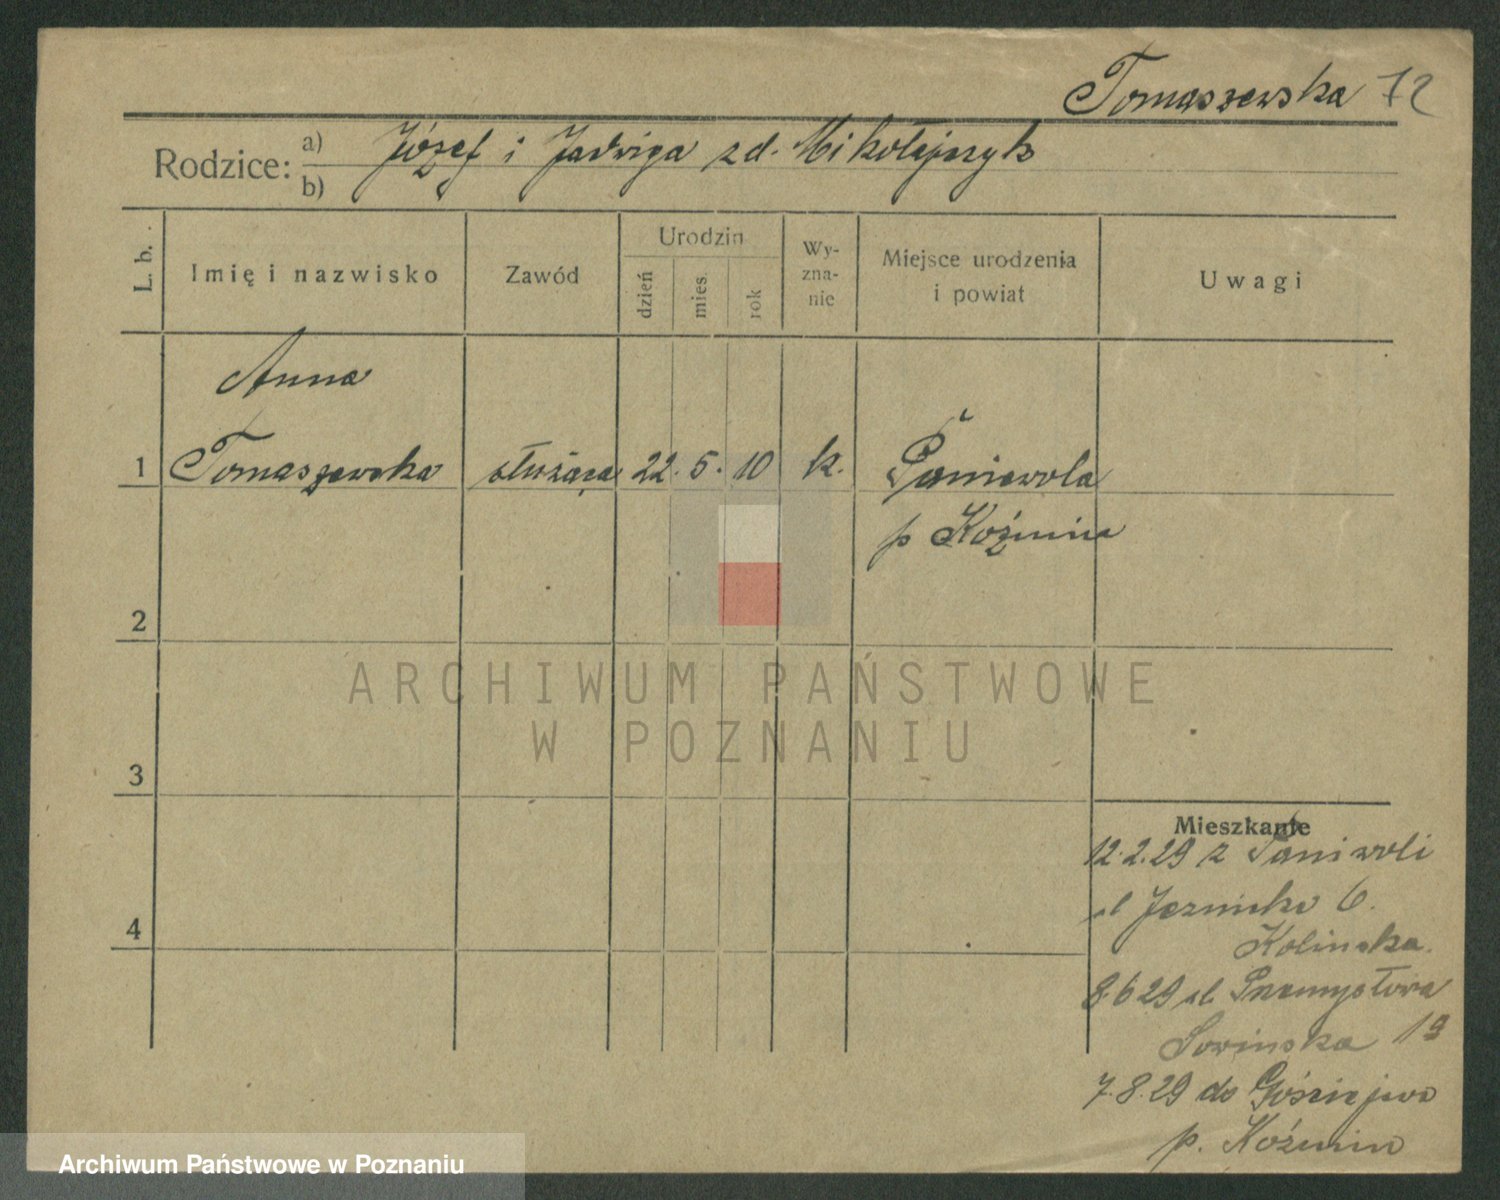 Tomaszewska 72
Rodzice: a) Józef i Jadwiga zd. Mikołajczyk
b)
L. b.
Imię i nazwisko
Zawód
Urodzin
dzień
mies.
rok
Wy-
zna-
nie
Miejsce urodzenia
i powiat
Uwagi
Anna
1 Tomaszewska służąca 22. 5. 10 k. Paniewola
p Koźmin
2
ARCHIWUM PAŃSTWOWE
W POZNANIU
3
Mieszkanie
12.2.29 z Paniwoli
ul 6.
4
Kolinska.
8.6 29 ul. Przemysłowa
Sowinska 19
7.8.29 do Gościejewa
p. Koźmin
Archiwum Państwowe w Poznaniu